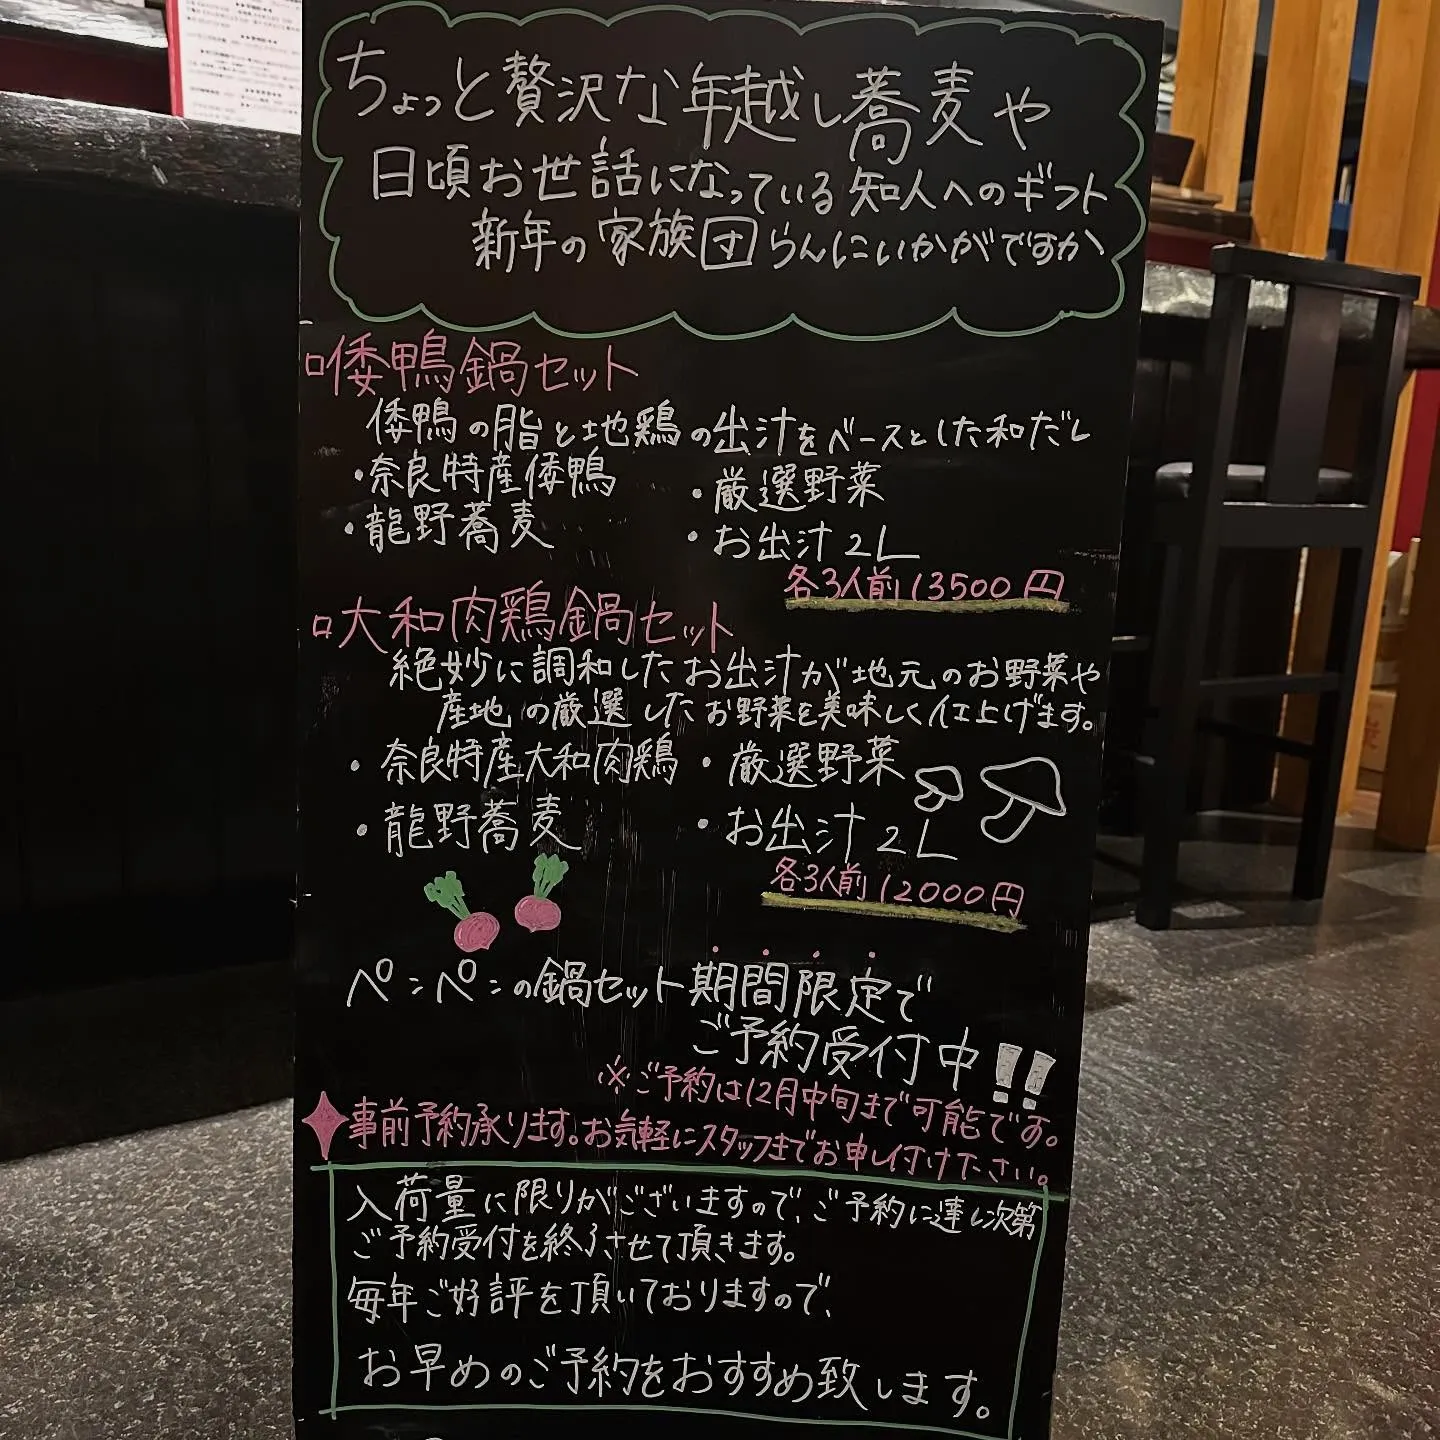 ちょっと贅沢な年越し蕎麦や
日頃お世話になっている知人へのギフト
新年の家族団らんにいかがですか
□倭鴨鍋セット
倭鴨の脂と地鶏の出汁をベースとした和だし
・奈良特産倭鴨 ・厳選野菜
・龍野蕎麦 ・お出汁2L
各3人前13500円
□大和肉鶏鍋セット
絶妙に調和したお出汁が地元のお野菜や
産地の厳選したお野菜を美味しく仕上げます。
・奈良特産大和肉鶏 ・厳選野菜
・龍野蕎麦 ・お出汁2L
各3人前12000円
ペンペンの鍋セット期間限定で
ご予約受付中!!
※ご予約は12月中旬まで可能です。
事前予約承ります。お気軽にスタッフまでお申し付け下さい。
入荷量に限りがございますので、ご予約に達し次第
ご予約受付を終了させて頂きます。
毎年ご好評を頂いておりますので、
お早めのご予約をおすすめ致します。